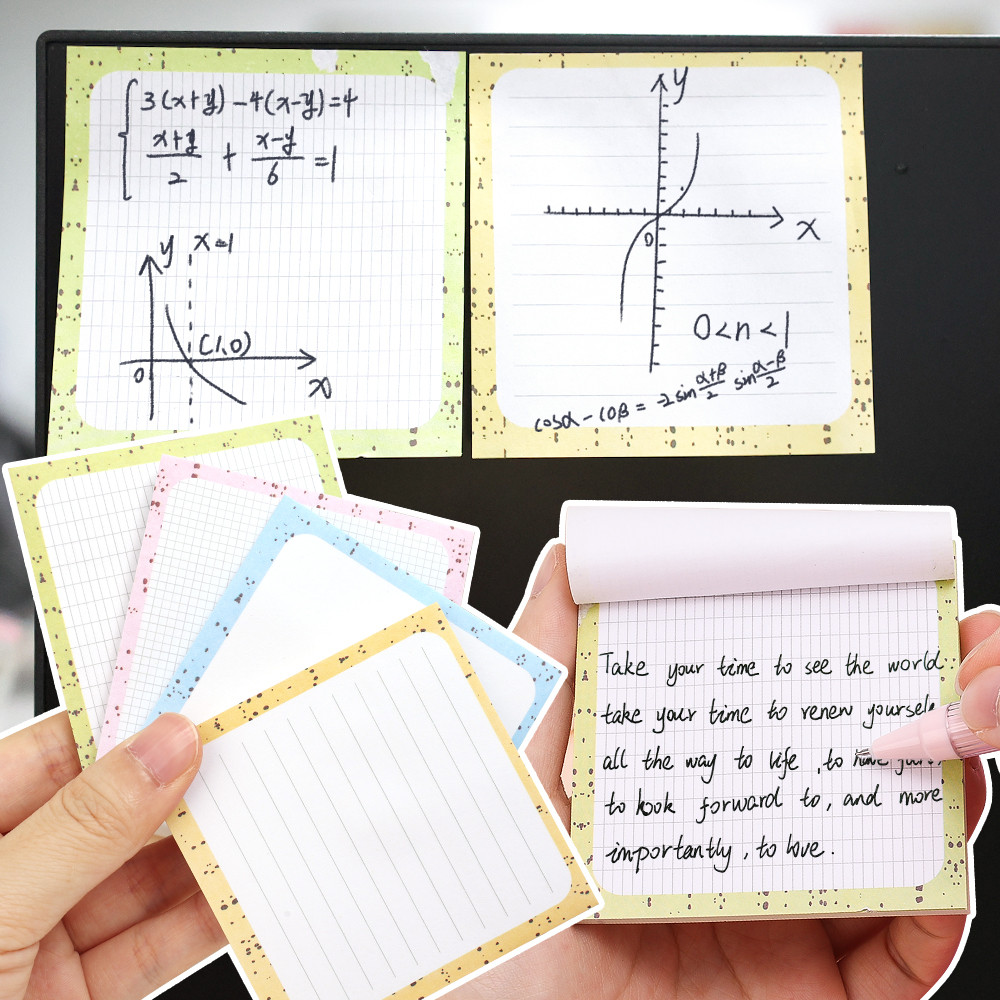 3(x+y)-4(x-y)=4
x+y/2 + x-y/6 =1
y x=1
(1,0)
0 x
y
x
0
0<n<1
cosα-coβ= -2sin α+β/2 sin α-β/2
Take your time to see the world
take your time to renew yourself
all the way to life , to
to look forward to, and more
importantly , to love .